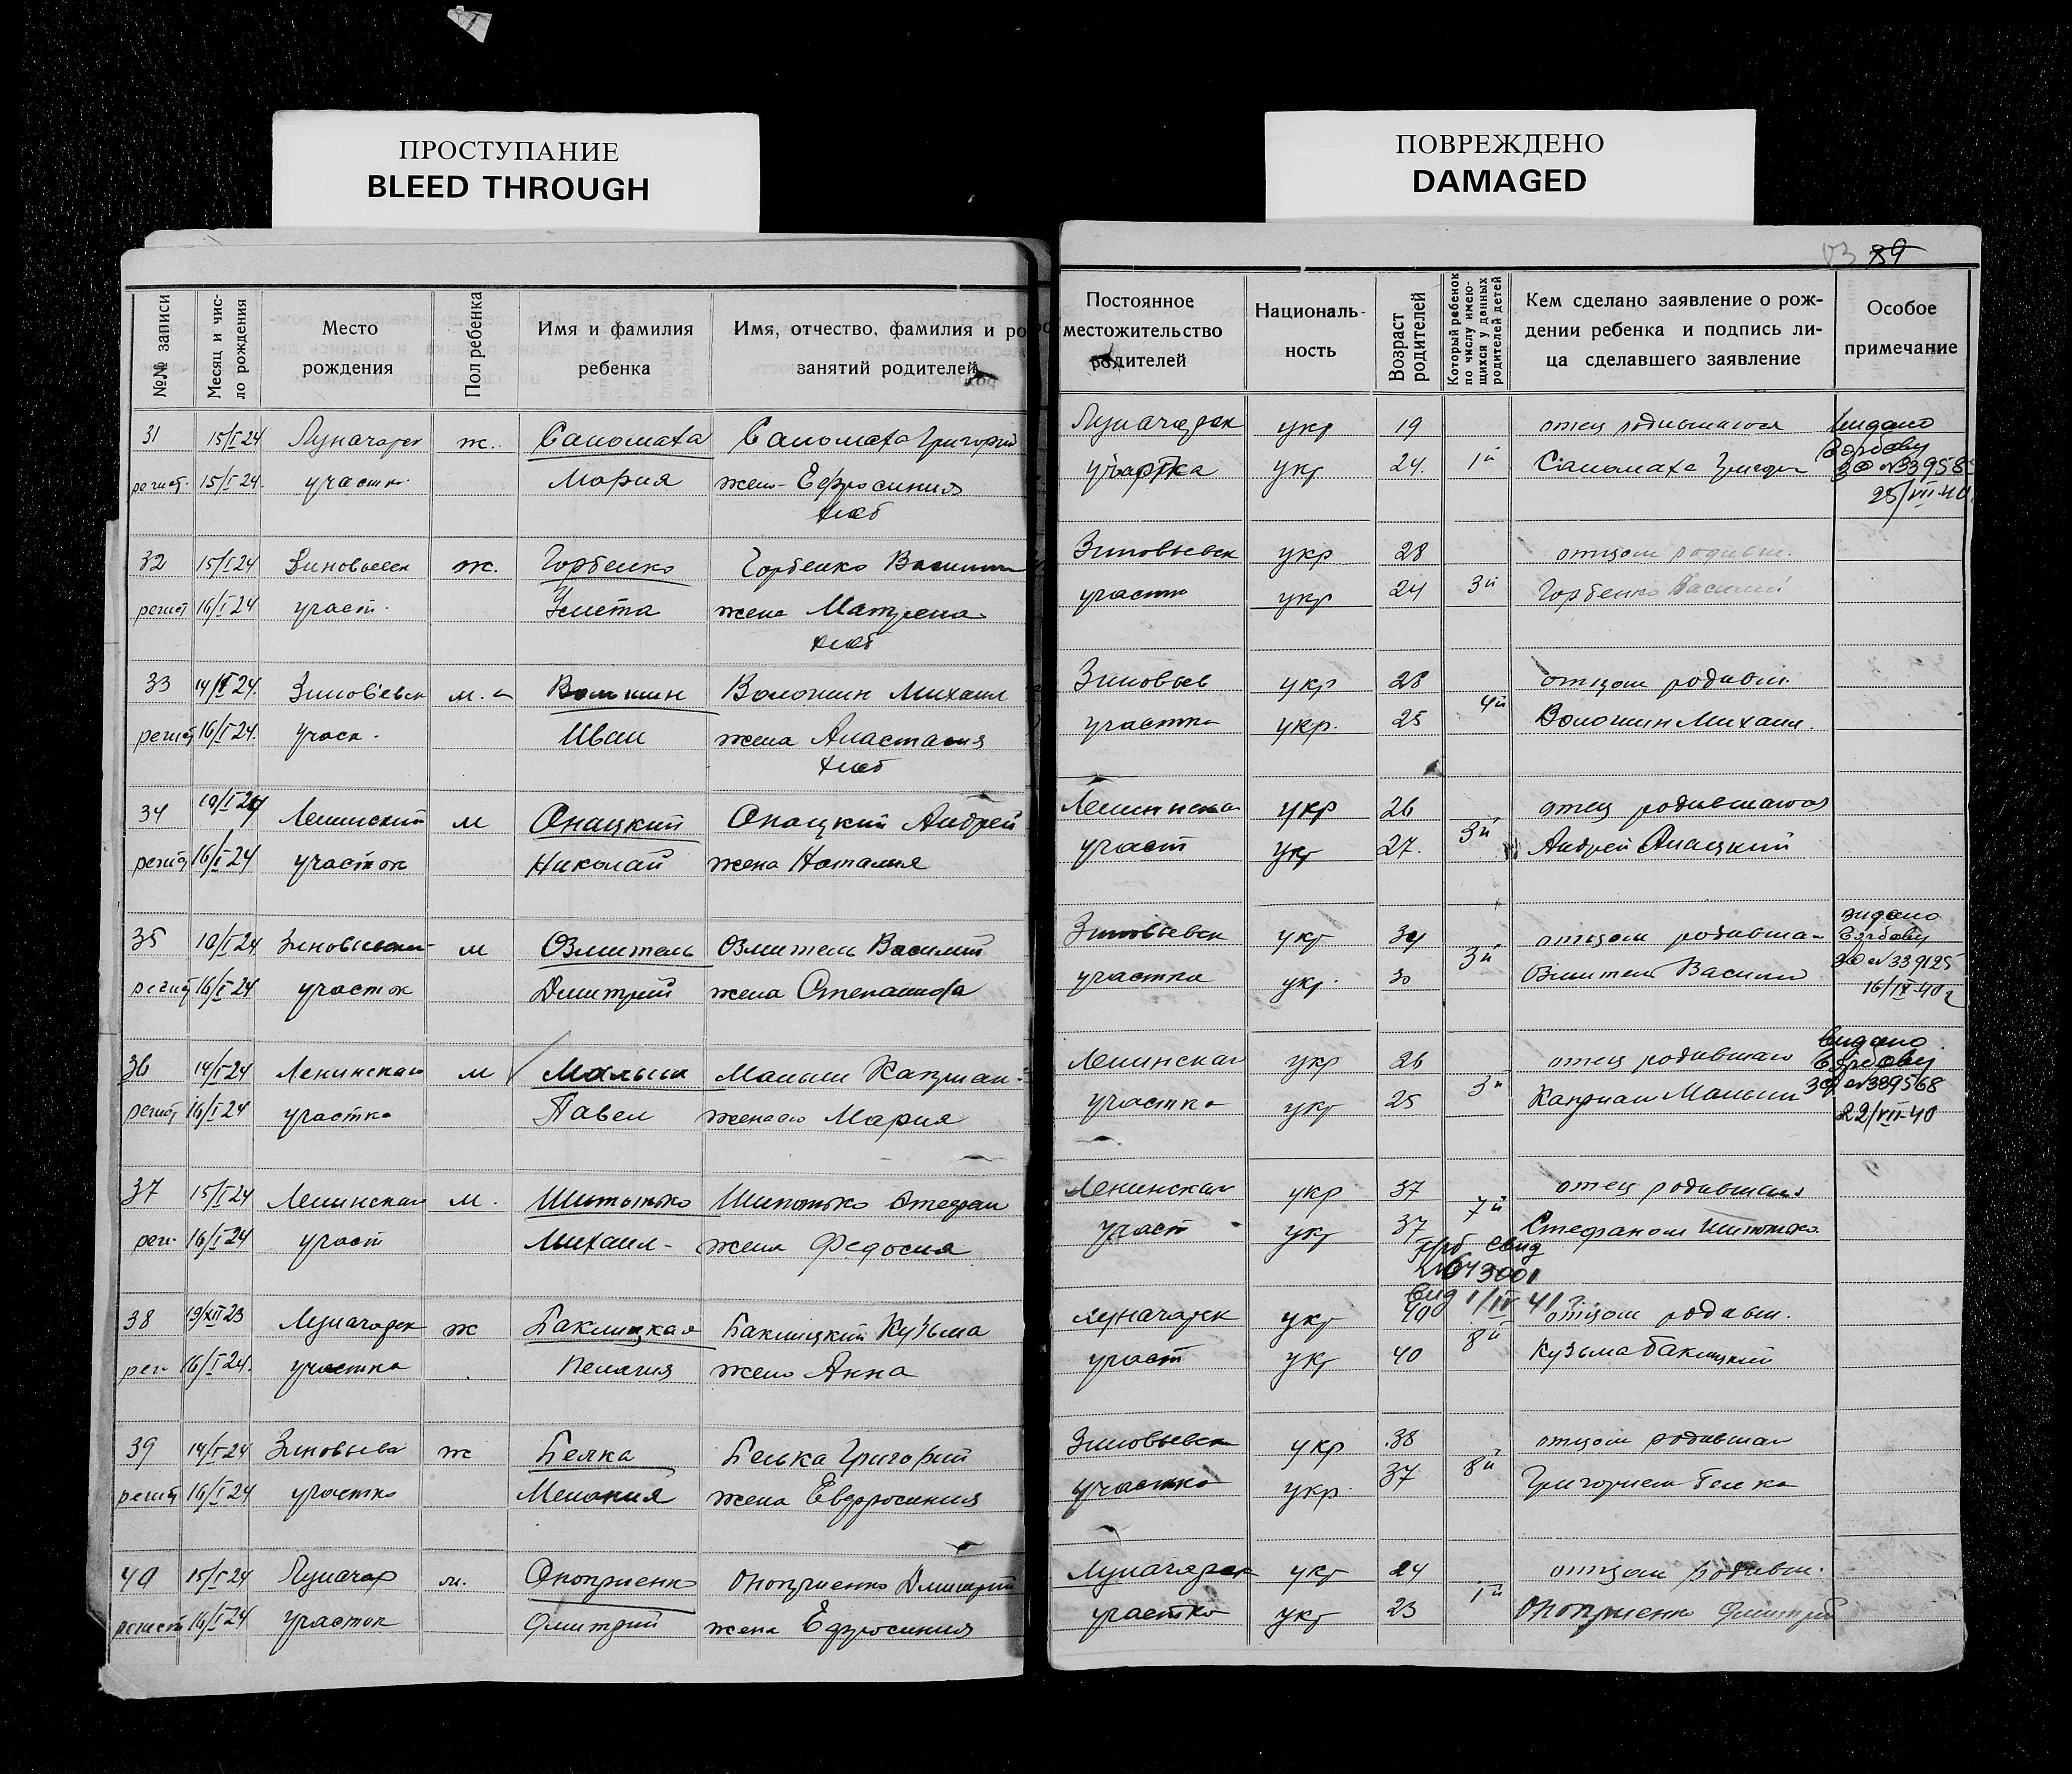 ПРОСТУПАНИЕ
BLEED THROUGH
ПОВРЕЖДЕНО
DAMAGED
89
№№ записи
Месяц и чис-
ло рождения
Место
рождения
Пол ребенка
Имя и фамилия
ребенка
Имя, отчество, фамилия и ро
занятий родителей
Постоянное
местожительство
родителей
Националь-
ность
Возраст
родителей
Который ребенок
по числу имею-
щихся у данных
родителей детей
Кем сделано заявление о рож-
дении ребенка и подпись ли-
ца сделавшего заявление
Особое
примечание
31 15/I 24 Луначарск ж. Саломаха Саломаха Григорий
регист. 15/I 24. участк. Мария жена Ефросиния
хлеб
Луначарск укр 19 отец родившагося
участка укр 24. 1й Саломаха Григори
видано
25/VII-40
32 15/I 24 Зиновьевск ж. Горбенко Горбенко Василии
регист 16/I 24 участ. жена Матрена
хлеб
Зиновьевск укр 28 отцом родивш.
участка укр 24 3й Горбенко Василий
33 14/I 24. Зиновьевск м. Волошин Волошин Михаил
регист 16/I 24. участ. Иван жена Анастасия
хлеб
Зиновьев укр 28 отцом родивш.
участка укр. 25 4й Волошин Михаил.
34 10/I 24 Ленинский м Онацкий Онацкий Андрей
регист 16/I 24 участок Николай жена Наталия
Ленинская укр 26 отец родившагося
участ укр 27. 3й Андрей Анацкий
35 10/I 24. Зиновьевск м Озмитель Озмитель Василий
регист 16/I 24 участок Дмитрий жена Степанида
Зиновьевск укр 34 отцом родивша
участка укр. 30 3й Озмитель Василий
видано
№ 339125
16/IX-40 г
36 14/I 24 Ленинская м Малыш Малыш Каприан
регист 16/I 24 участка Павел жена его Мария
Ленинская укр 26 отец родившаго
участка укр 25 3й Каприан Малыш
видано
№ 339568
22/VII-40
37 15/I 24 Ленинская м. Шитотько Шитотько Стефан
рег. 16/I 24 участ Михаил- жена Федосия
Ленинская укр 37 отец родившаго
участ укр 37 7й Стефаном Шитотько
свид
643001
вид 1/IV 41 г
38 19/XII 23 Луначарск ж Баклицкая Баклицкий Кузьма
рег. 16/I 24. участка Пелагия жена Анна
Луначарск укр 40 отцом родивш.
участ укр 40 8й Кузьма Баклицкий
39 14/I 24 Зиновьева ж Белка Белька Григорий
регист 16/I 24 участка Мелания жена Евдросиния
Зиновьевск укр 38 отцом родившаг
участка укр. 37 8й Григорием Белка
40 15/I 24 Луначар м. Оноприенко Оноприенко Дмитрий
регист 16/I 24 участок Дмитрий жена Ефросиния
Луначарск укр 24 отцом родивш.
участка укр 23 1й Оноприенко Дмитрий